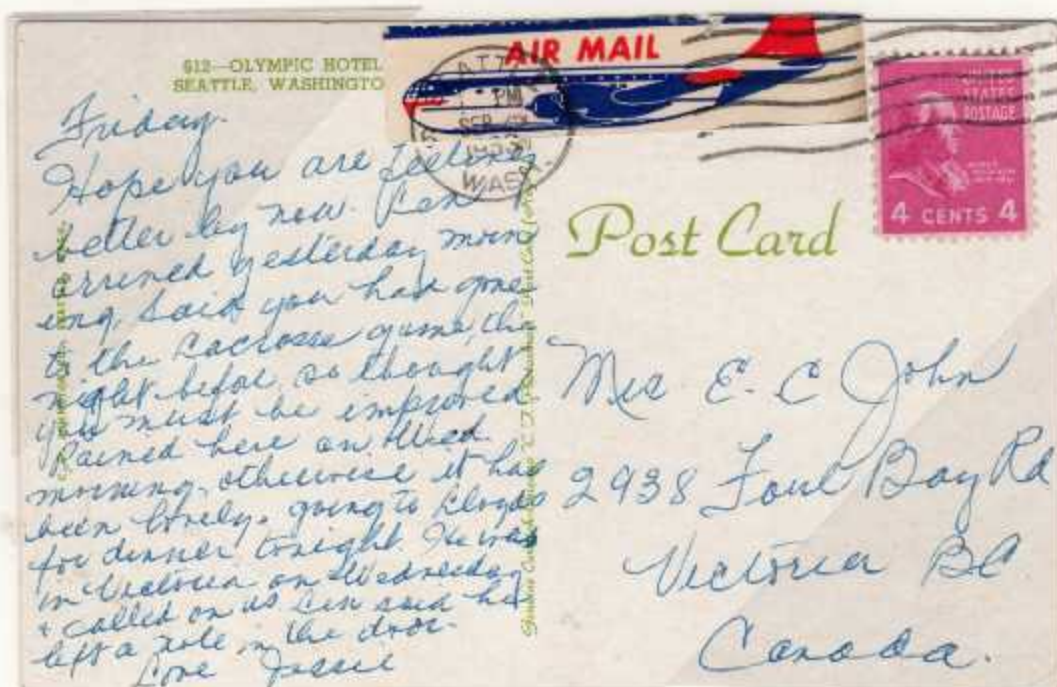 612—OLYMPIC HOTEL
SEATTLE, WASHINGTO
AIR MAIL
PM
SEP
WASH
UNITED
STATES
POSTAGE
4 CENTS 4
Post Card
Friday.
Hope you are feeling
better by now. Ken
arrived yesterday morn
ing, said you had gone
to the Lacrosse game, the
night before, so thought
you must be improved
Rained here on Wed.
morning, otherwise it has
been lovely. going to Lloyds
for dinner tonight. He was
in Victoria on Wednesday
+ called on us Ken said he
left a note in the door.
Love Jessie
Mrs E. C John
2938 Foul Bay Rd
Victoria BC
Canada.